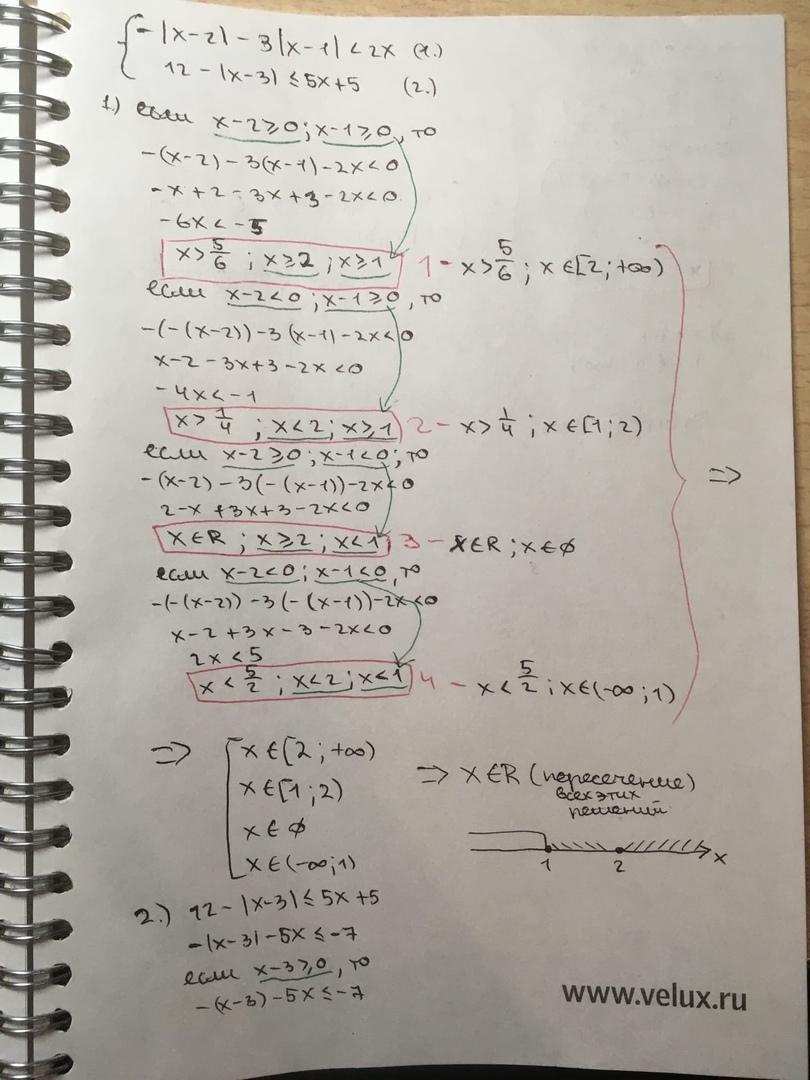 -|x-2| - 3|x-1| < 2x (1.)
12 - |x-3| ≤ 5x+5 (2.)
1.) если x-2≥0; x-1≥0, то
-(x-2) - 3(x-1) - 2x < 0
-x + 2 - 3x + 3 - 2x < 0
-6x < -5
x > 5/6 ; x≥2 ; x≥1 1 - x > 5/6 ; x∈[2; +∞)
если x-2<0; x-1≥0, то
-(-(x-2)) - 3(x-1) - 2x < 0
x - 2 - 3x + 3 - 2x < 0
-4x < -1
x > 1/4 ; x<2; x≥1 2 - x > 1/4 ; x∈[1; 2)
если x-2≥0; x-1<0; то
-(x-2) - 3(-(x-1)) - 2x < 0
2 - x + 3x + 3 - 2x < 0
x∈R ; x≥2 ; x<1 3 - x∈R ; x∈ø
⇒
если x-2<0; x-1<0, то
-(-(x-2)) - 3(-(x-1)) - 2x < 0
x - 2 + 3x - 3 - 2x < 0
2x < 5
x < 5/2 ; x<2; x<1 4 - x < 5/2 ; x∈(-∞; 1)
⇒ x∈[2; +∞)
x∈[1; 2)
x∈ø
x∈(-∞; 1)
⇒ x∈R (пересечение)
всех этих
решений
1 2 x
2.) 12 - |x-3| ≤ 5x + 5
-|x-3| - 5x ≤ -7
если x-3≥0, то
-(x-3) - 5x ≤ -7
www.velux.ru